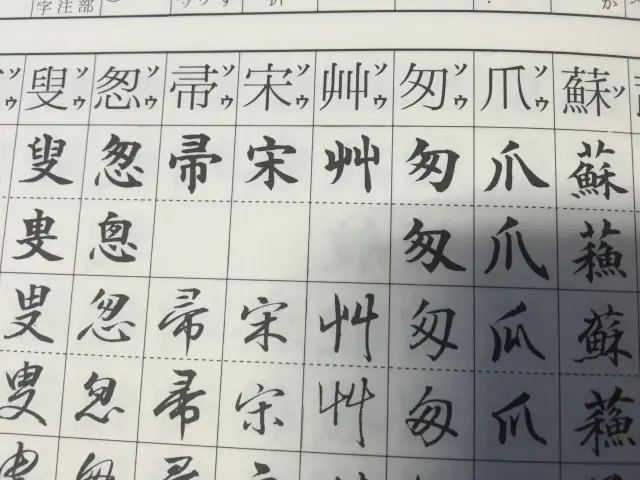 字注部
叟ソウ 怱ソウ 帚ソウ 宋ソウ 艸ソウ 匆ソウ 爪ソウ 蘇ソ
叟 怱 帚 宋 艸 匆 爪 蘇
匆 爪 蘓
叟 怱 帚 宋 艸 匆 爪 蘇
叟 怱 帚 宋 艸 匆 爪 蘓